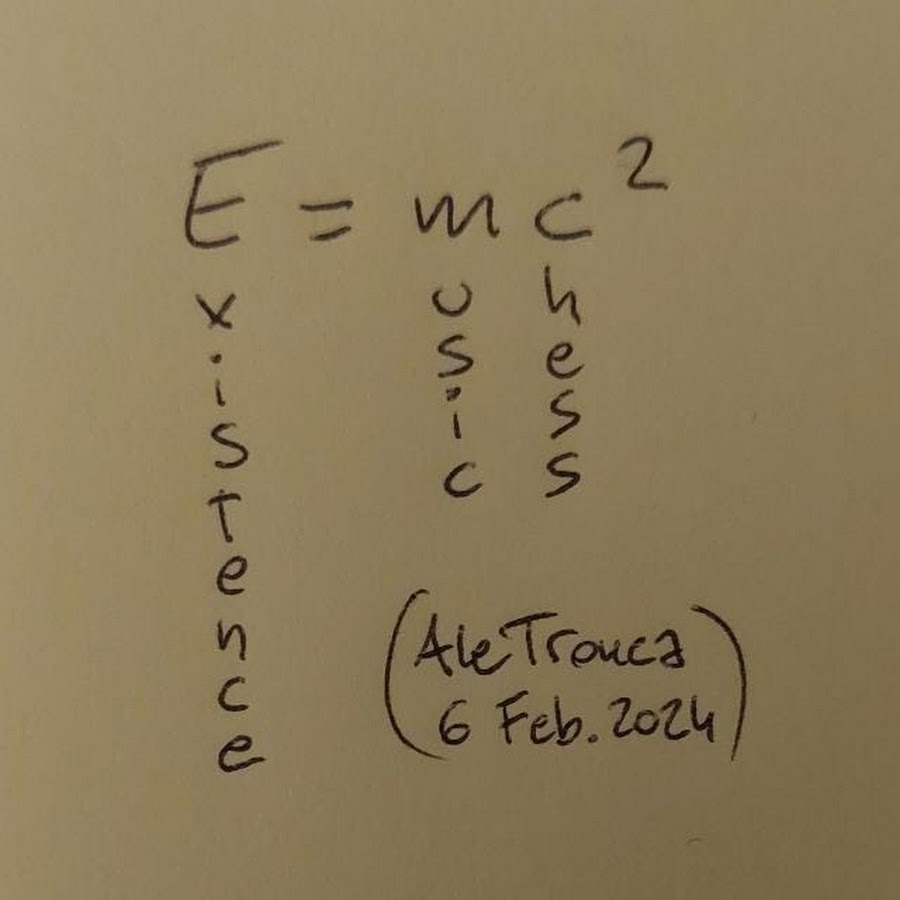 E = mc²
xistence
usic
hess
(AleTrouca
6 Feb. 2024)